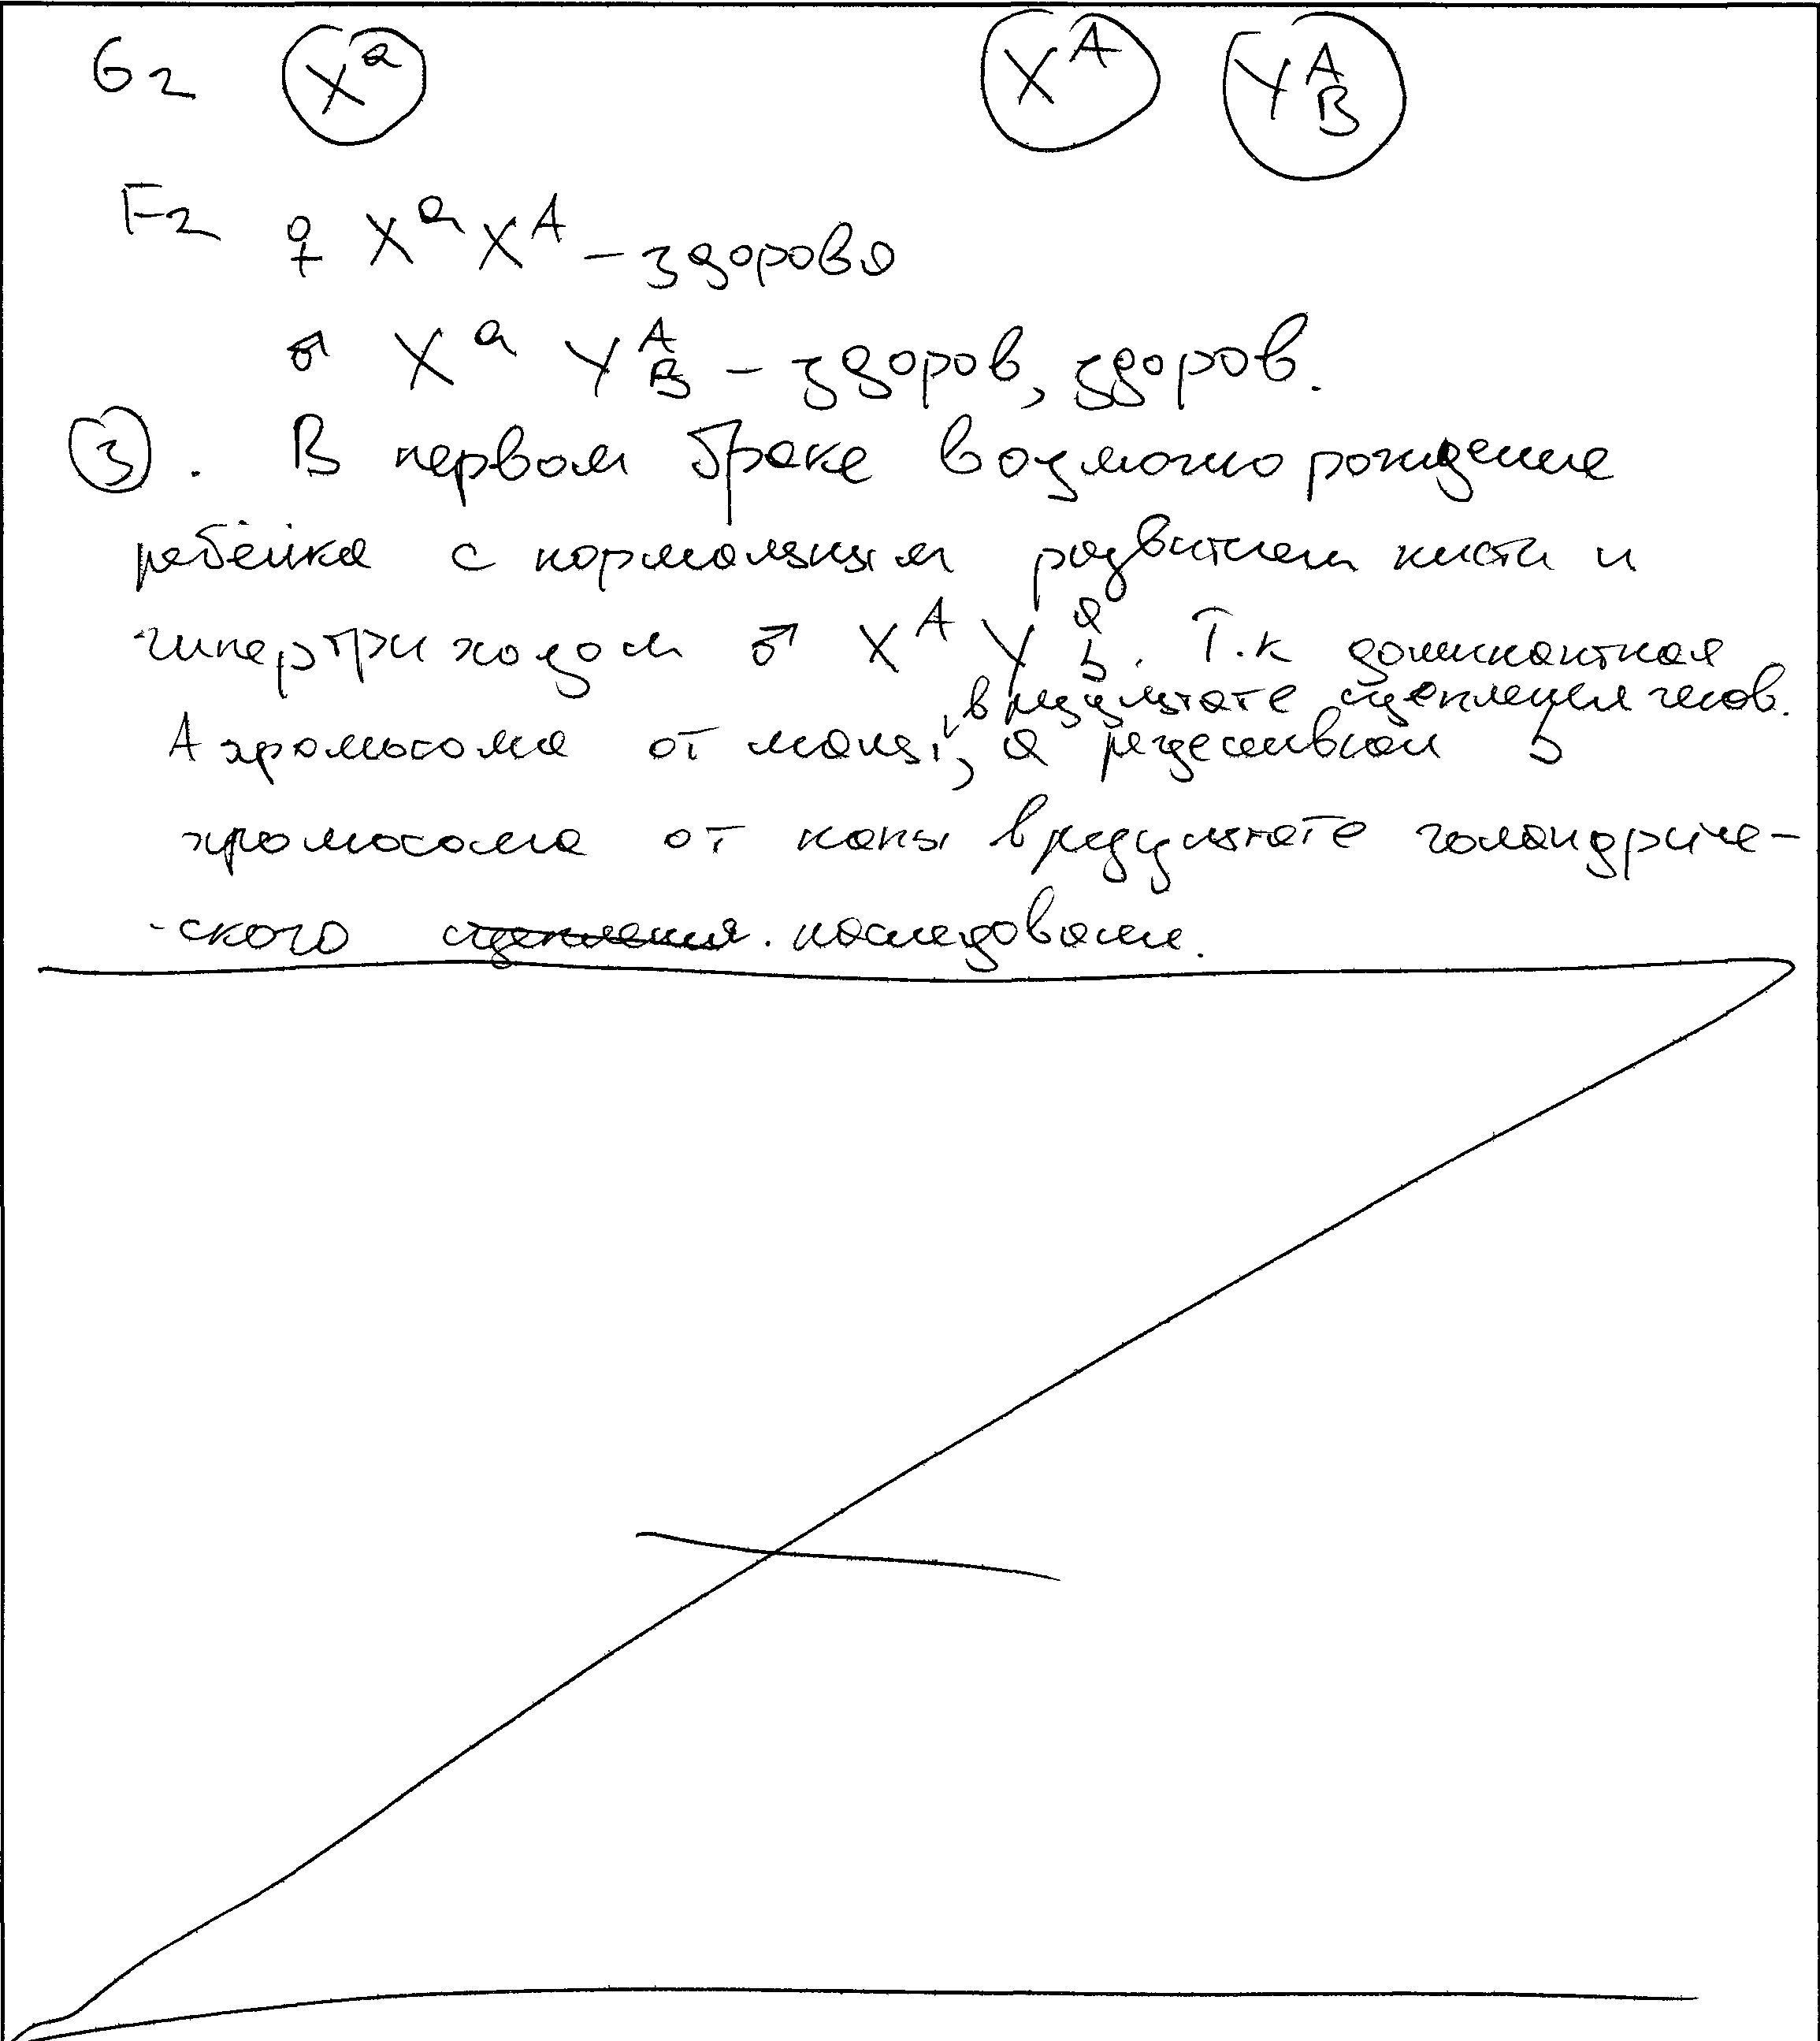 G2 X^a X^A Y^A_B
F2 ♀ X^a X^A – здорова
♂ X^a Y^A_B – здоров, здоров.
③. В первом браке возможно рождение
ребёнка с нормальным развитием кисти и
гипертрихозом ♂ X^A Y^a_b. Т.к доминантная
в результате сцепления генов.
А хромосома от мамы, а рецессивная b
хромосома от папы в результате голандриче-
-ского сцепления. наследования.